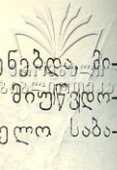 ენებდა, მი-
მოუწვდო-
ელო საბა-